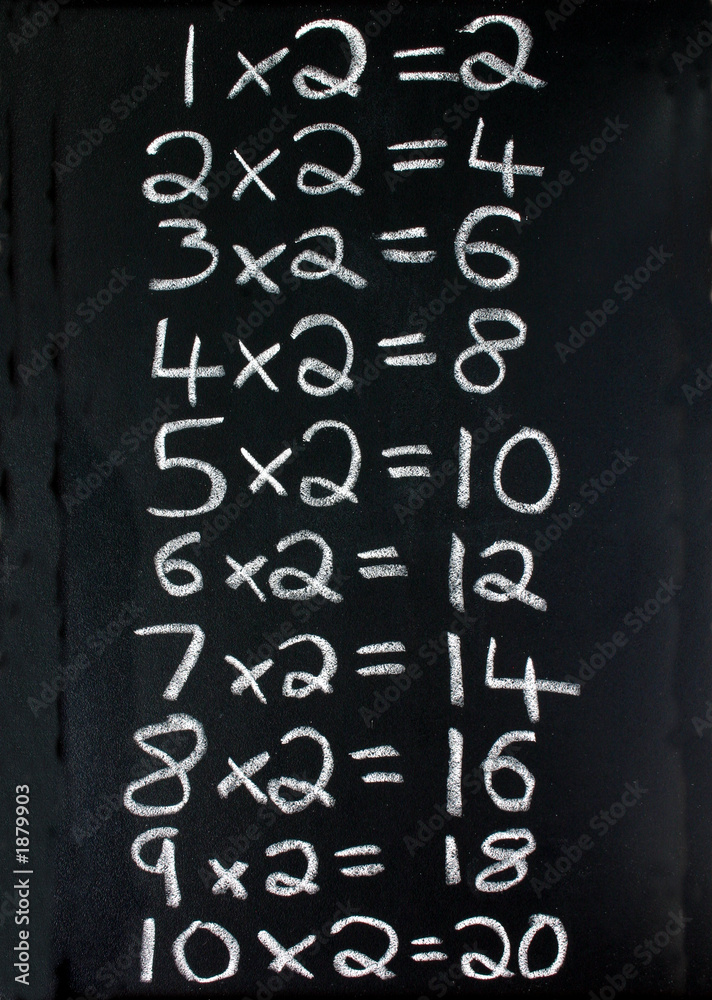 1 × 2 = 2
2 × 2 = 4
3 × 2 = 6
4 × 2 = 8
5 × 2 = 10
6 × 2 = 12
7 × 2 = 14
8 × 2 = 16
9 × 2 = 18
10 × 2 = 20
Adobe Stock | #1879903